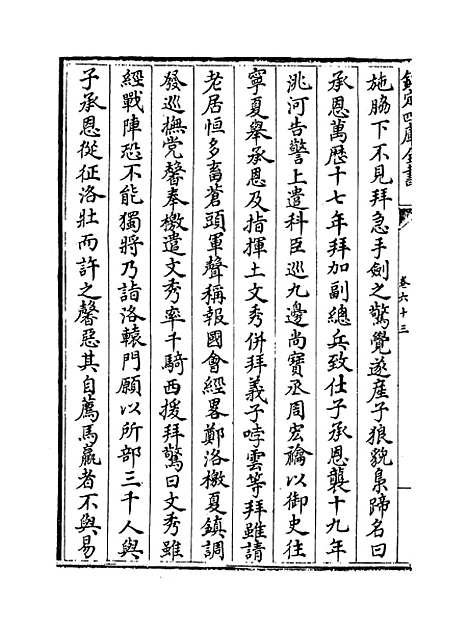 欽定四庫全書
卷六十三
施脇下不見拜急手劍之驚覺遂產子狼貌梟蹄名曰
承恩萬歷十七年拜加副總兵致仕子承恩襲十九年
洮河告警上遣科臣巡九邊尚寶丞周宏禴以御史往
寧夏舉承恩及指揮土文秀併拜義子哱雲等拜雖請
老居恒多畜蒼頭軍聲稱報國會經畧鄭洛檄夏鎮調
發巡撫党馨奉檄遣文秀率千騎西援拜驚曰文秀雖
經戰陣恐不能獨將乃詣洛轅門願以所部三千人與
子承恩從征洛壯而許之馨惡其自薦馬羸者不與易